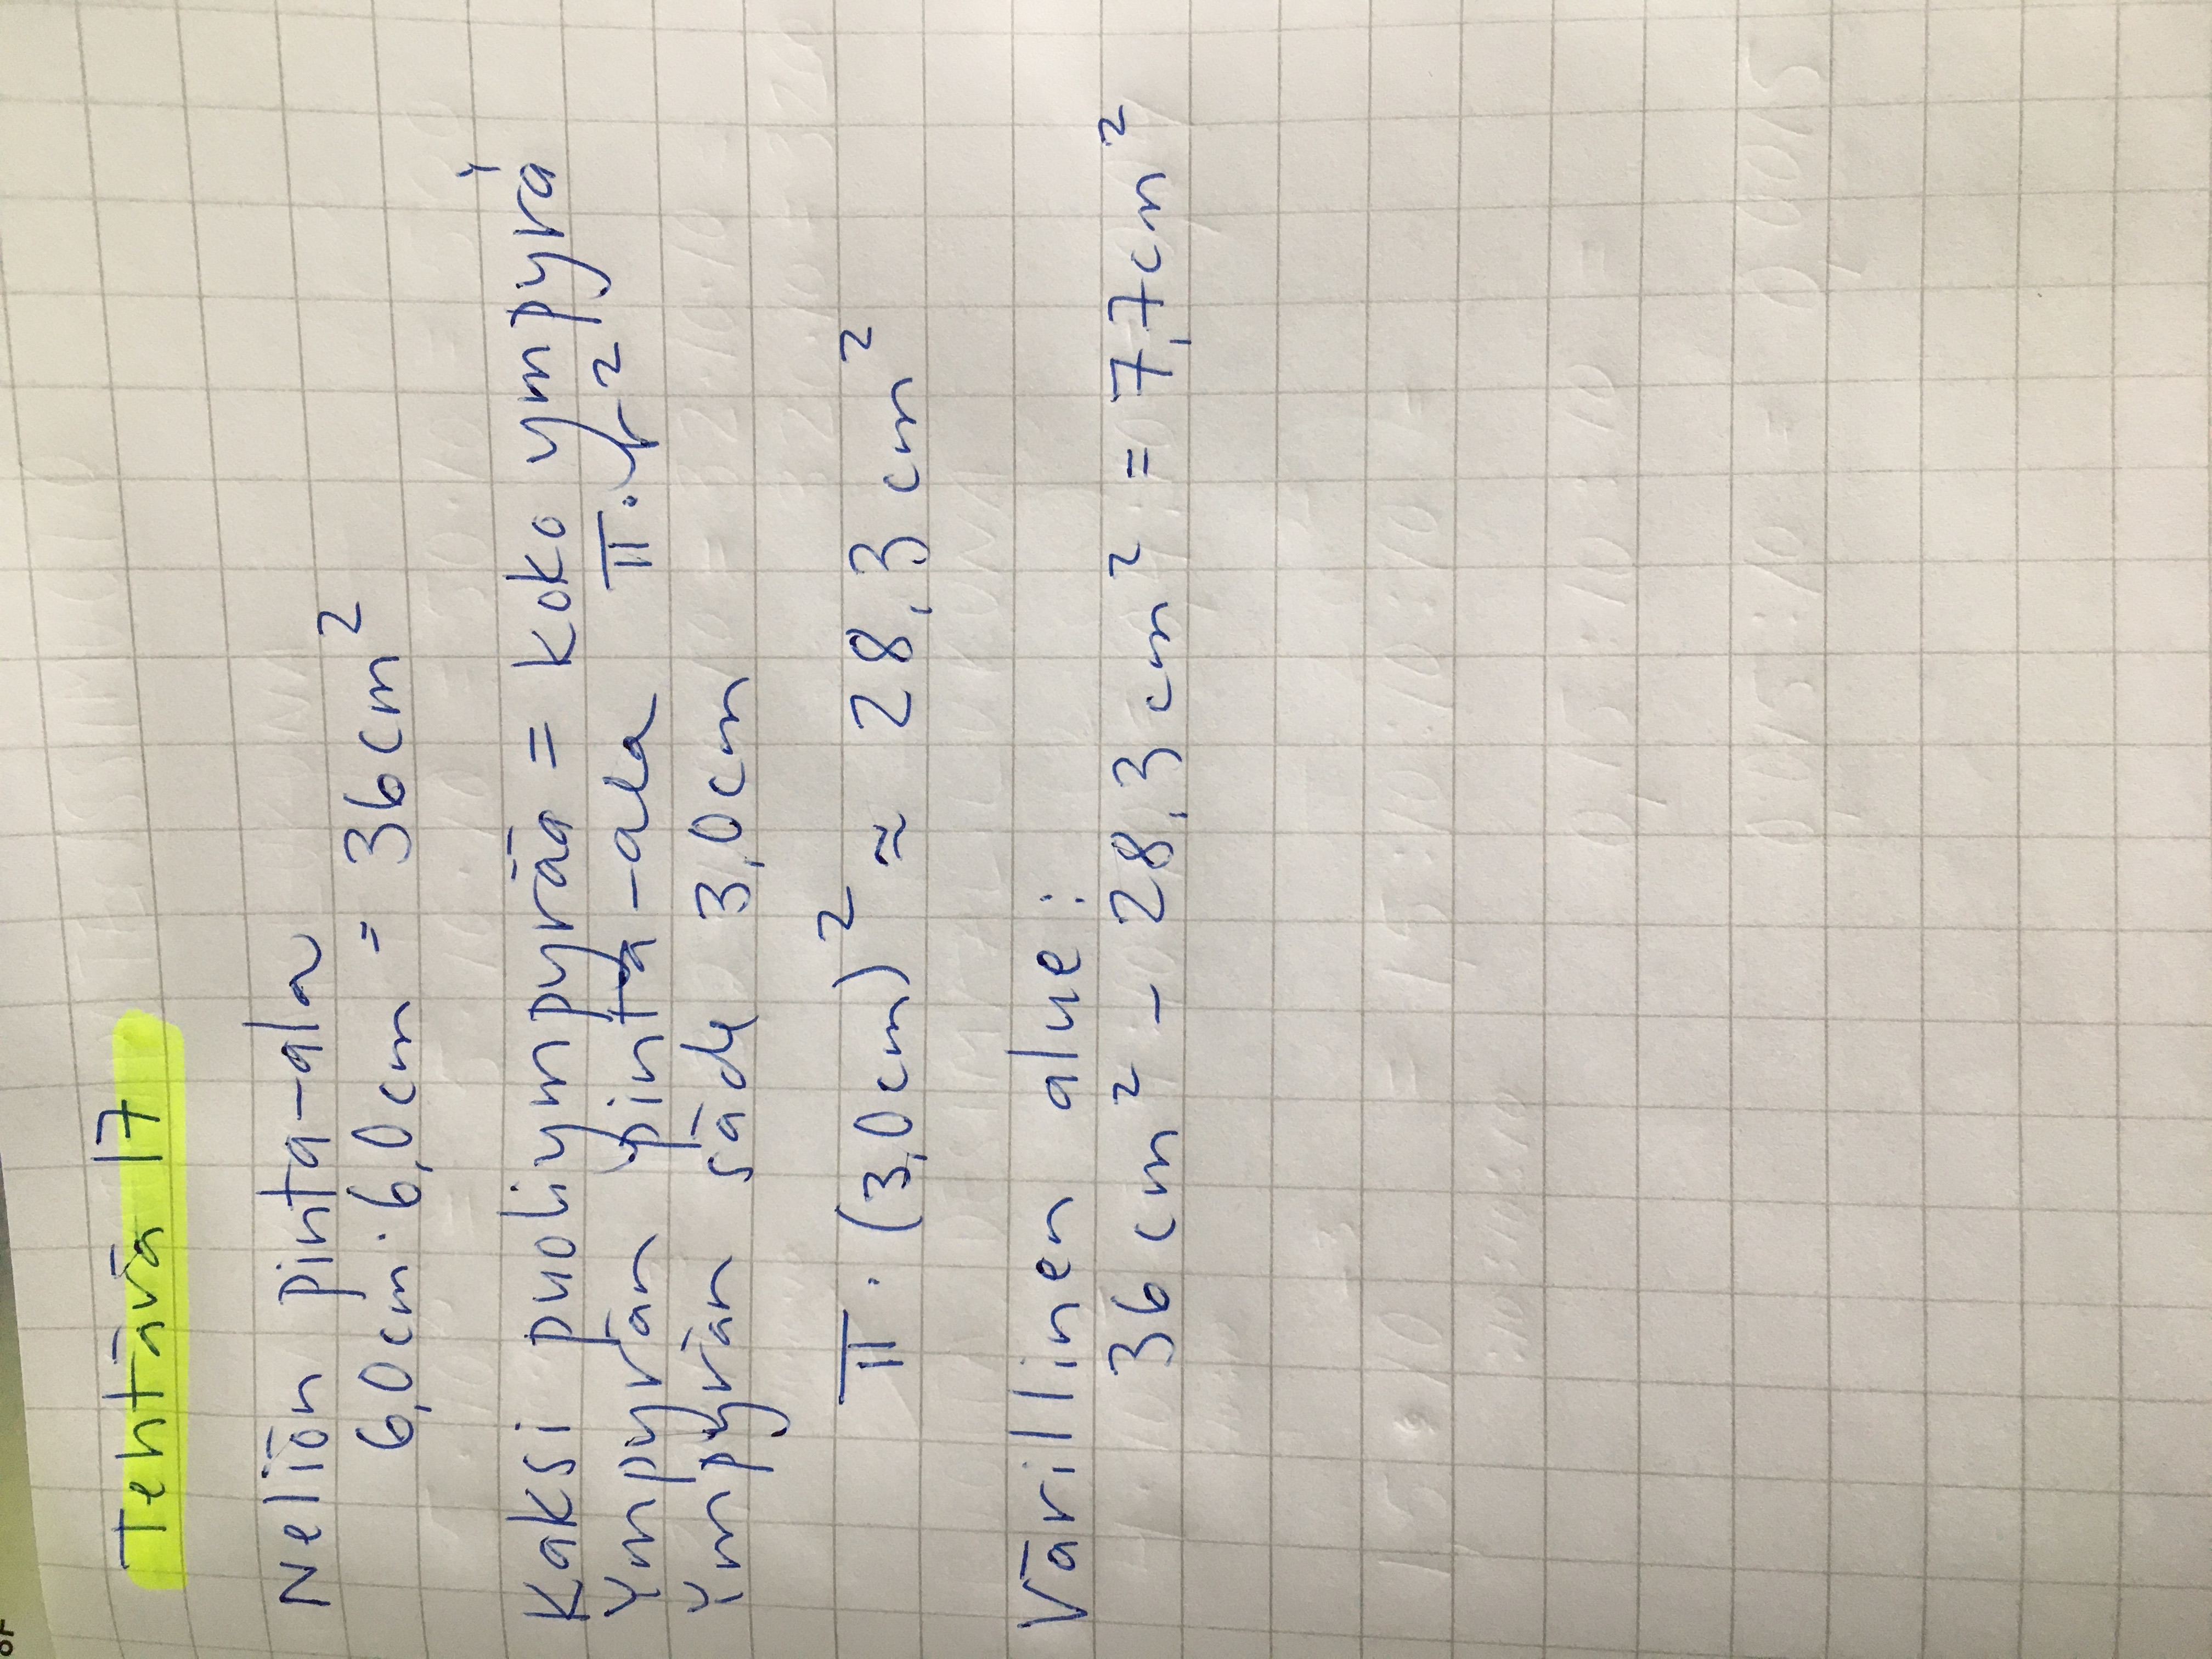 Tehtävä 17
Neliön pinta-ala
6,0cm · 6,0cm = 36cm²
Kaksi puoliympyrää = koko ympyrä
Ympyrän pinta-ala π · r²
Ympyrän säde 3,0cm
π · (3,0cm)² ≈ 28,3 cm²
Värillinen alue:
36 cm² - 28,3cm² = 7,7cm²